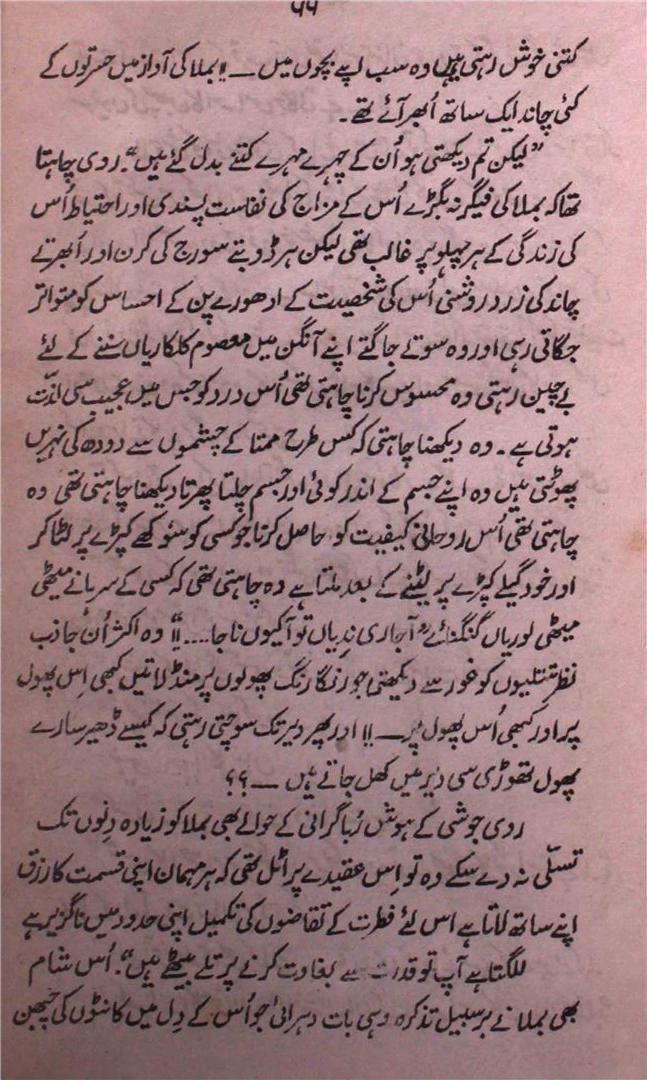 کتنی خوش رہتی ہیں وہ سب اپنے بچوں میں — !! بملا کی آواز میں حسرتوں کے
کئی چاند ایک ساتھ اُبھر آئے تھے۔
”لیکن تم دیکھتی ہو اُن کے چہرے مہرے کتنے بدل گئے ہیں“۔ روی چاہتا
تھا کہ بملا کی فیگر نہ بگڑے اُس کے مزاج کی نفاست پسندی اور احتیاط اُس
کی زندگی کے ہر پہلو پر غالب تھی لیکن ہر ڈوبتے سورج کی کرن اور اُبھرتے
چاند کی زرد روشنی اُس کی شخصیت کے ادھورے پن کے احساس کو متواتر
جگاتی رہی اور وہ سوتے جاگتے اپنے آنگن میں معصوم کلکاریاں سننے کے لئے
بے چین رہتی وہ محسوس کرنا چاہتی تھی اُس درد کو جس میں عجیب سی لذّت
ہوتی ہے۔ وہ دیکھنا چاہتی کہ کس طرح ممتا کے چشموں سے دودھ کی نہریں
پھوٹتی ہیں وہ اپنے جسم کے اندر کوئی اور جسم چلتا پھرتا دیکھنا چاہتی تھی وہ
چاہتی تھی اُس روحانی کیفیت کو حاصل کرنا جو کسی کو سُوکھے کپڑے پر لٹا کر
اور خود گیلے کپڑے پر لیٹنے کے بعد ملتا ہے وہ چاہتی تھی کہ کسی کے سرہانے میٹھی
میٹھی لوریاں گنگنائے ”آ جا ری نِدیاں تو آ کیوں نا جا....!!“ وہ اکثر اُن جاذب
نظر تتلیوں کو غور سے دیکھتی جو رنگا رنگ پھولوں پر منڈلاتیں کبھی اِس پھول
پر اور کبھی اُس پھول پر — !! اور پھر دیر تک سوچتی رہتی کہ کیسے ڈھیر سارے
پھول تھوڑی سی دیر میں کھل جاتے ہیں — ؟؟
روی جوشی کے ہوش رُبا گرانی کے حوالے بھی بملا کو زیادہ دِنوں تک
تسلّی نہ دے سکے وہ تو اِس عقیدے پر اٹل تھی کہ ہر مہمان اپنی قسمت کا رزق
اپنے ساتھ لاتا ہے اس لئے فطرت کے تقاضوں کی تکمیل اپنی حدود میں ناگزیر ہے
للگتا ہے آپ تو قدرت سے بغاوت کرنے پر تلے بیٹھے ہیں“۔ اُس شام
بھی بملا نے برسبیل تذکرہ وہی بات دہرائی جو اُس کے دِل میں کانٹوں کی چبھن